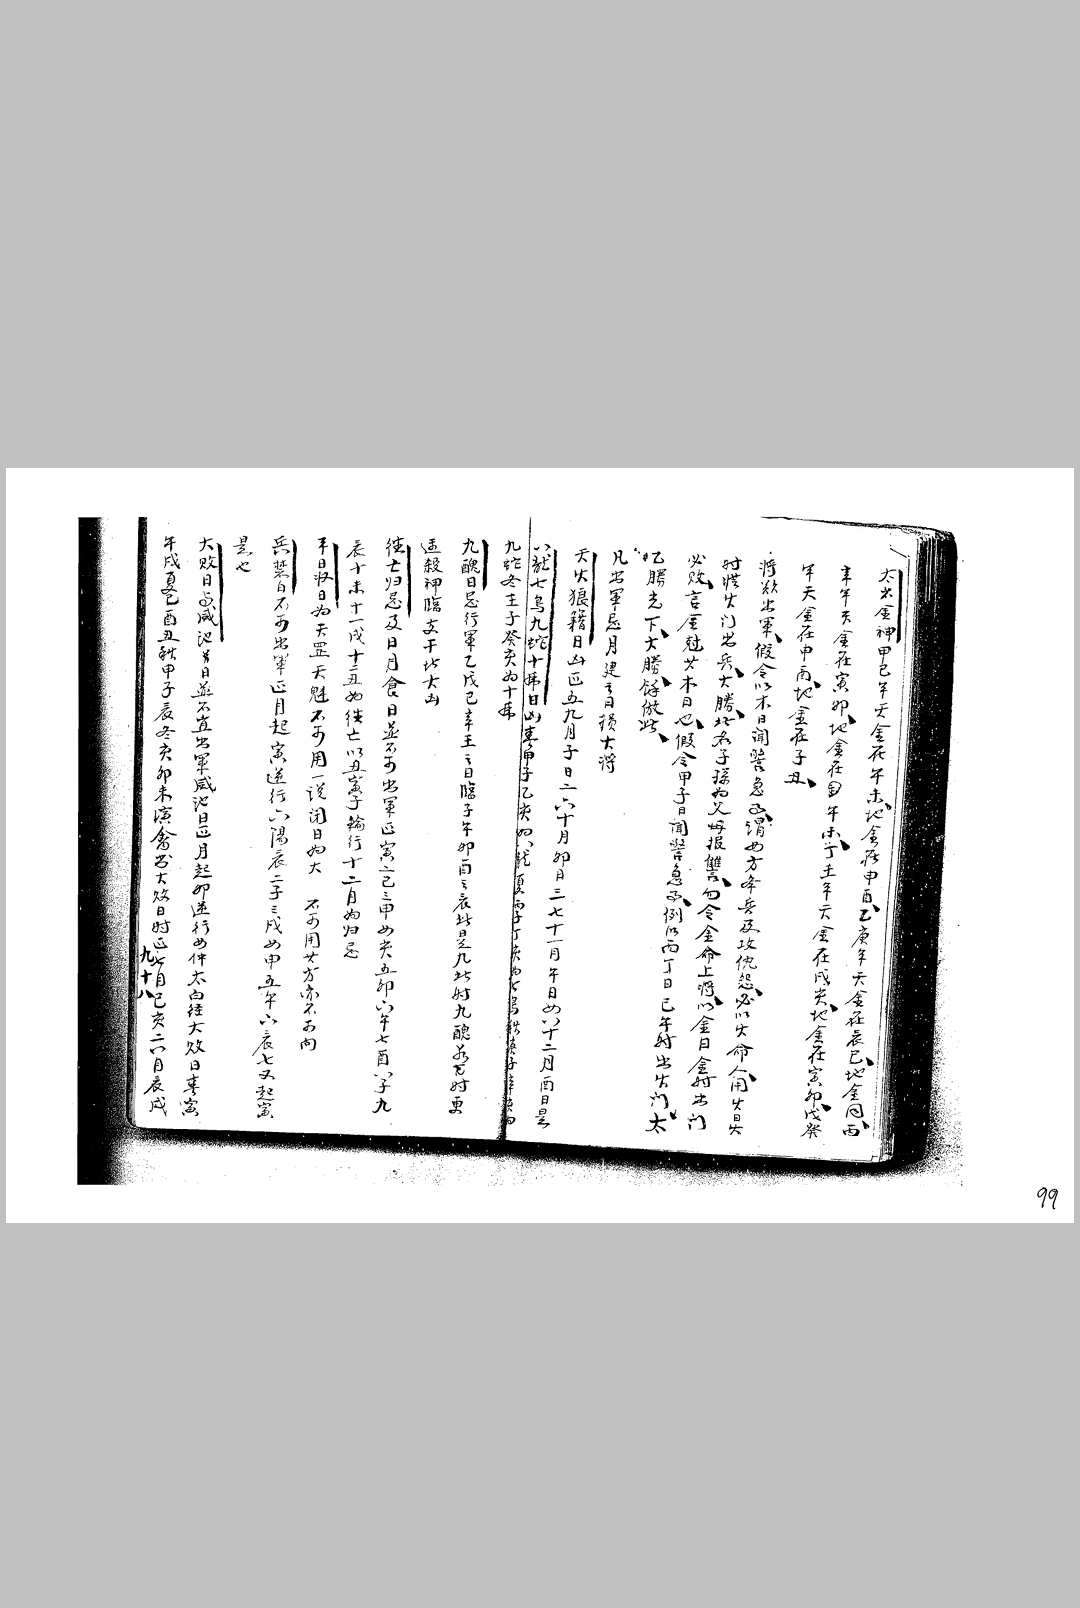 太白金神甲己年天金在午未地金在申酉乙庚年天金在辰巳地金同丙
辛年天金在寅卯地金在午未丁壬年天金在戌亥地金在寅卯戊癸
年天金在申酉地金在子丑
將欲出軍假令以木日聞警急
時從火门出兵大勝此名子孫為父母报讐勿令金命上將以金日金時出门
必敗言金尅木日也假令甲子日聞警急例以丙丁日巳午時出火门太
乙勝光下大勝餘倣此
凡出軍忌月建之日損大將
天火狼籍日凶正五九月子日二六十月卯日三七十一月午日四八十二月酉日是
八龍七鳥九蛇十㐧日凶春甲子乙亥為八龍夏丙子丁亥為七鳥秋庚子辛亥为
九蛇冬壬子癸亥为十
九醜日忌行軍乙戊己辛壬之日臨子午卯酉之辰此是九
殺神臨支干此大凶
往亡归忌及日月食日並不可出軍正寅二巳三申四亥五卯六午七酉八子九
辰十未十一戌十二丑为往亡以丑寅子輪行十二月为归忌
平日收日为天罡天魁不可用一说闭日为大 不可用
兵禁日不可出軍正月起寅逆行六陽辰二子三戌四申五午六辰七又起寅
是也
大敗日咸池日並不宜出軍咸池日正月起卯逆行四仲太白往大敗日春寅
午戌夏巳酉丑秋申子辰冬亥卯未演禽大敗日時正七月巳亥二八月辰戌
九十八
99